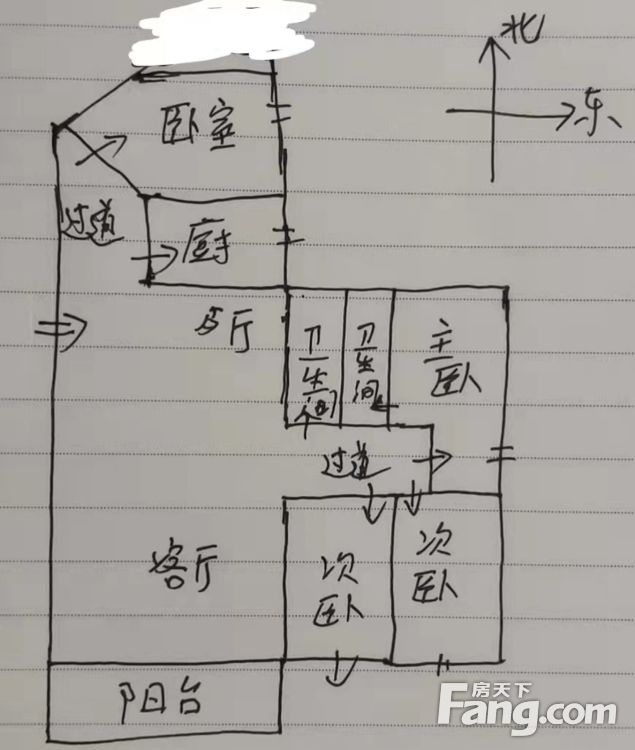 北
东
卧室
过道
厨
餐厅
卫生间
卫生间
主卧
过道
客厅
次卧
次卧
阳台
房天下
Fang.com